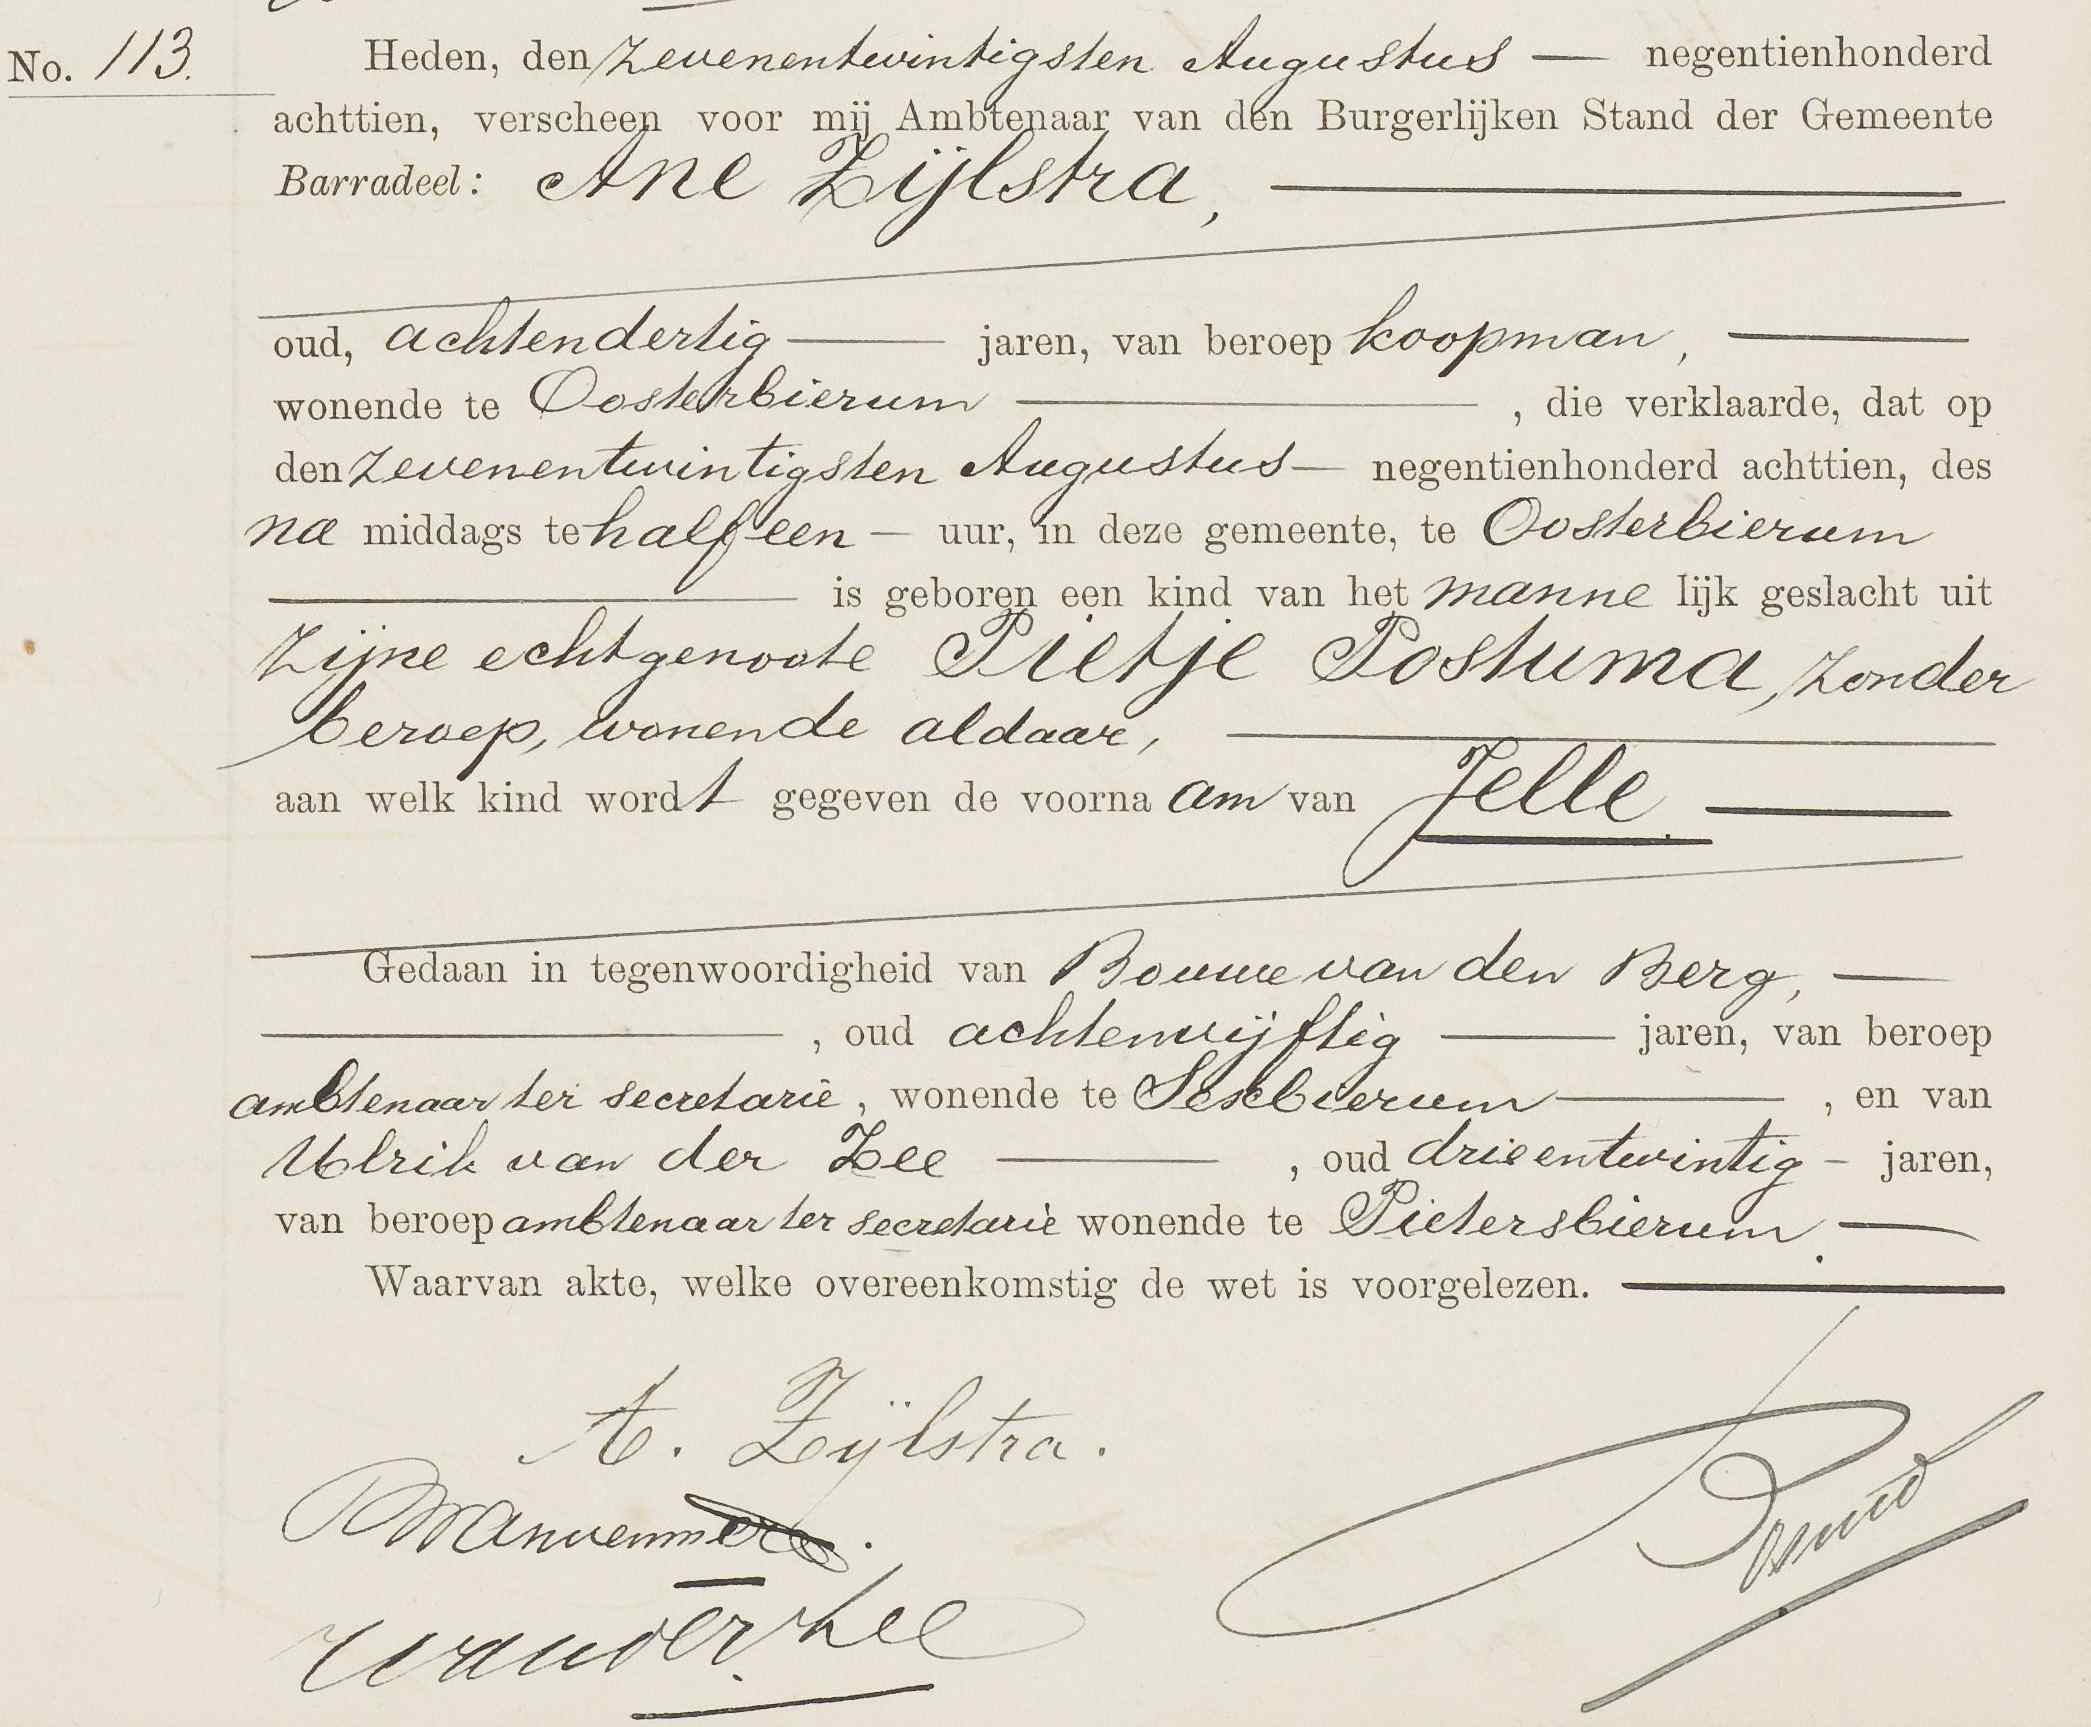 No. 113.
Heden, den zevenentwintigsten Augustus — negentienhonderd
achttien, verscheen voor mij Ambtenaar van den Burgerlijken Stand der Gemeente
Barradeel: Ane Zijlstra,
oud, achtendertig — jaren, van beroep koopman,
wonende te Oosterbierum — , die verklaarde, dat op
den zevenentwintigsten Augustus — negentienhonderd achttien, des
na middags te half een — uur, in deze gemeente, te Oosterbierum
— is geboren een kind van het manne lijk geslacht uit
zijne echtgenoote Pietje Postuma, zonder
beroep, wonende aldaar, —
aan welk kind wordt gegeven de voorna am van Jelle. —
Gedaan in tegenwoordigheid van Bouwe van den Berg, —
— , oud achtenvijftig — jaren, van beroep
ambtenaar ter secretarie, wonende te Sexbierum — , en van
Ulrik van der Zee — , oud drieentwintig — jaren,
van beroep ambtenaar ter secretarie wonende te Pietersbierum. —
Waarvan akte, welke overeenkomstig de wet is voorgelezen. —
A. Zijlstra.